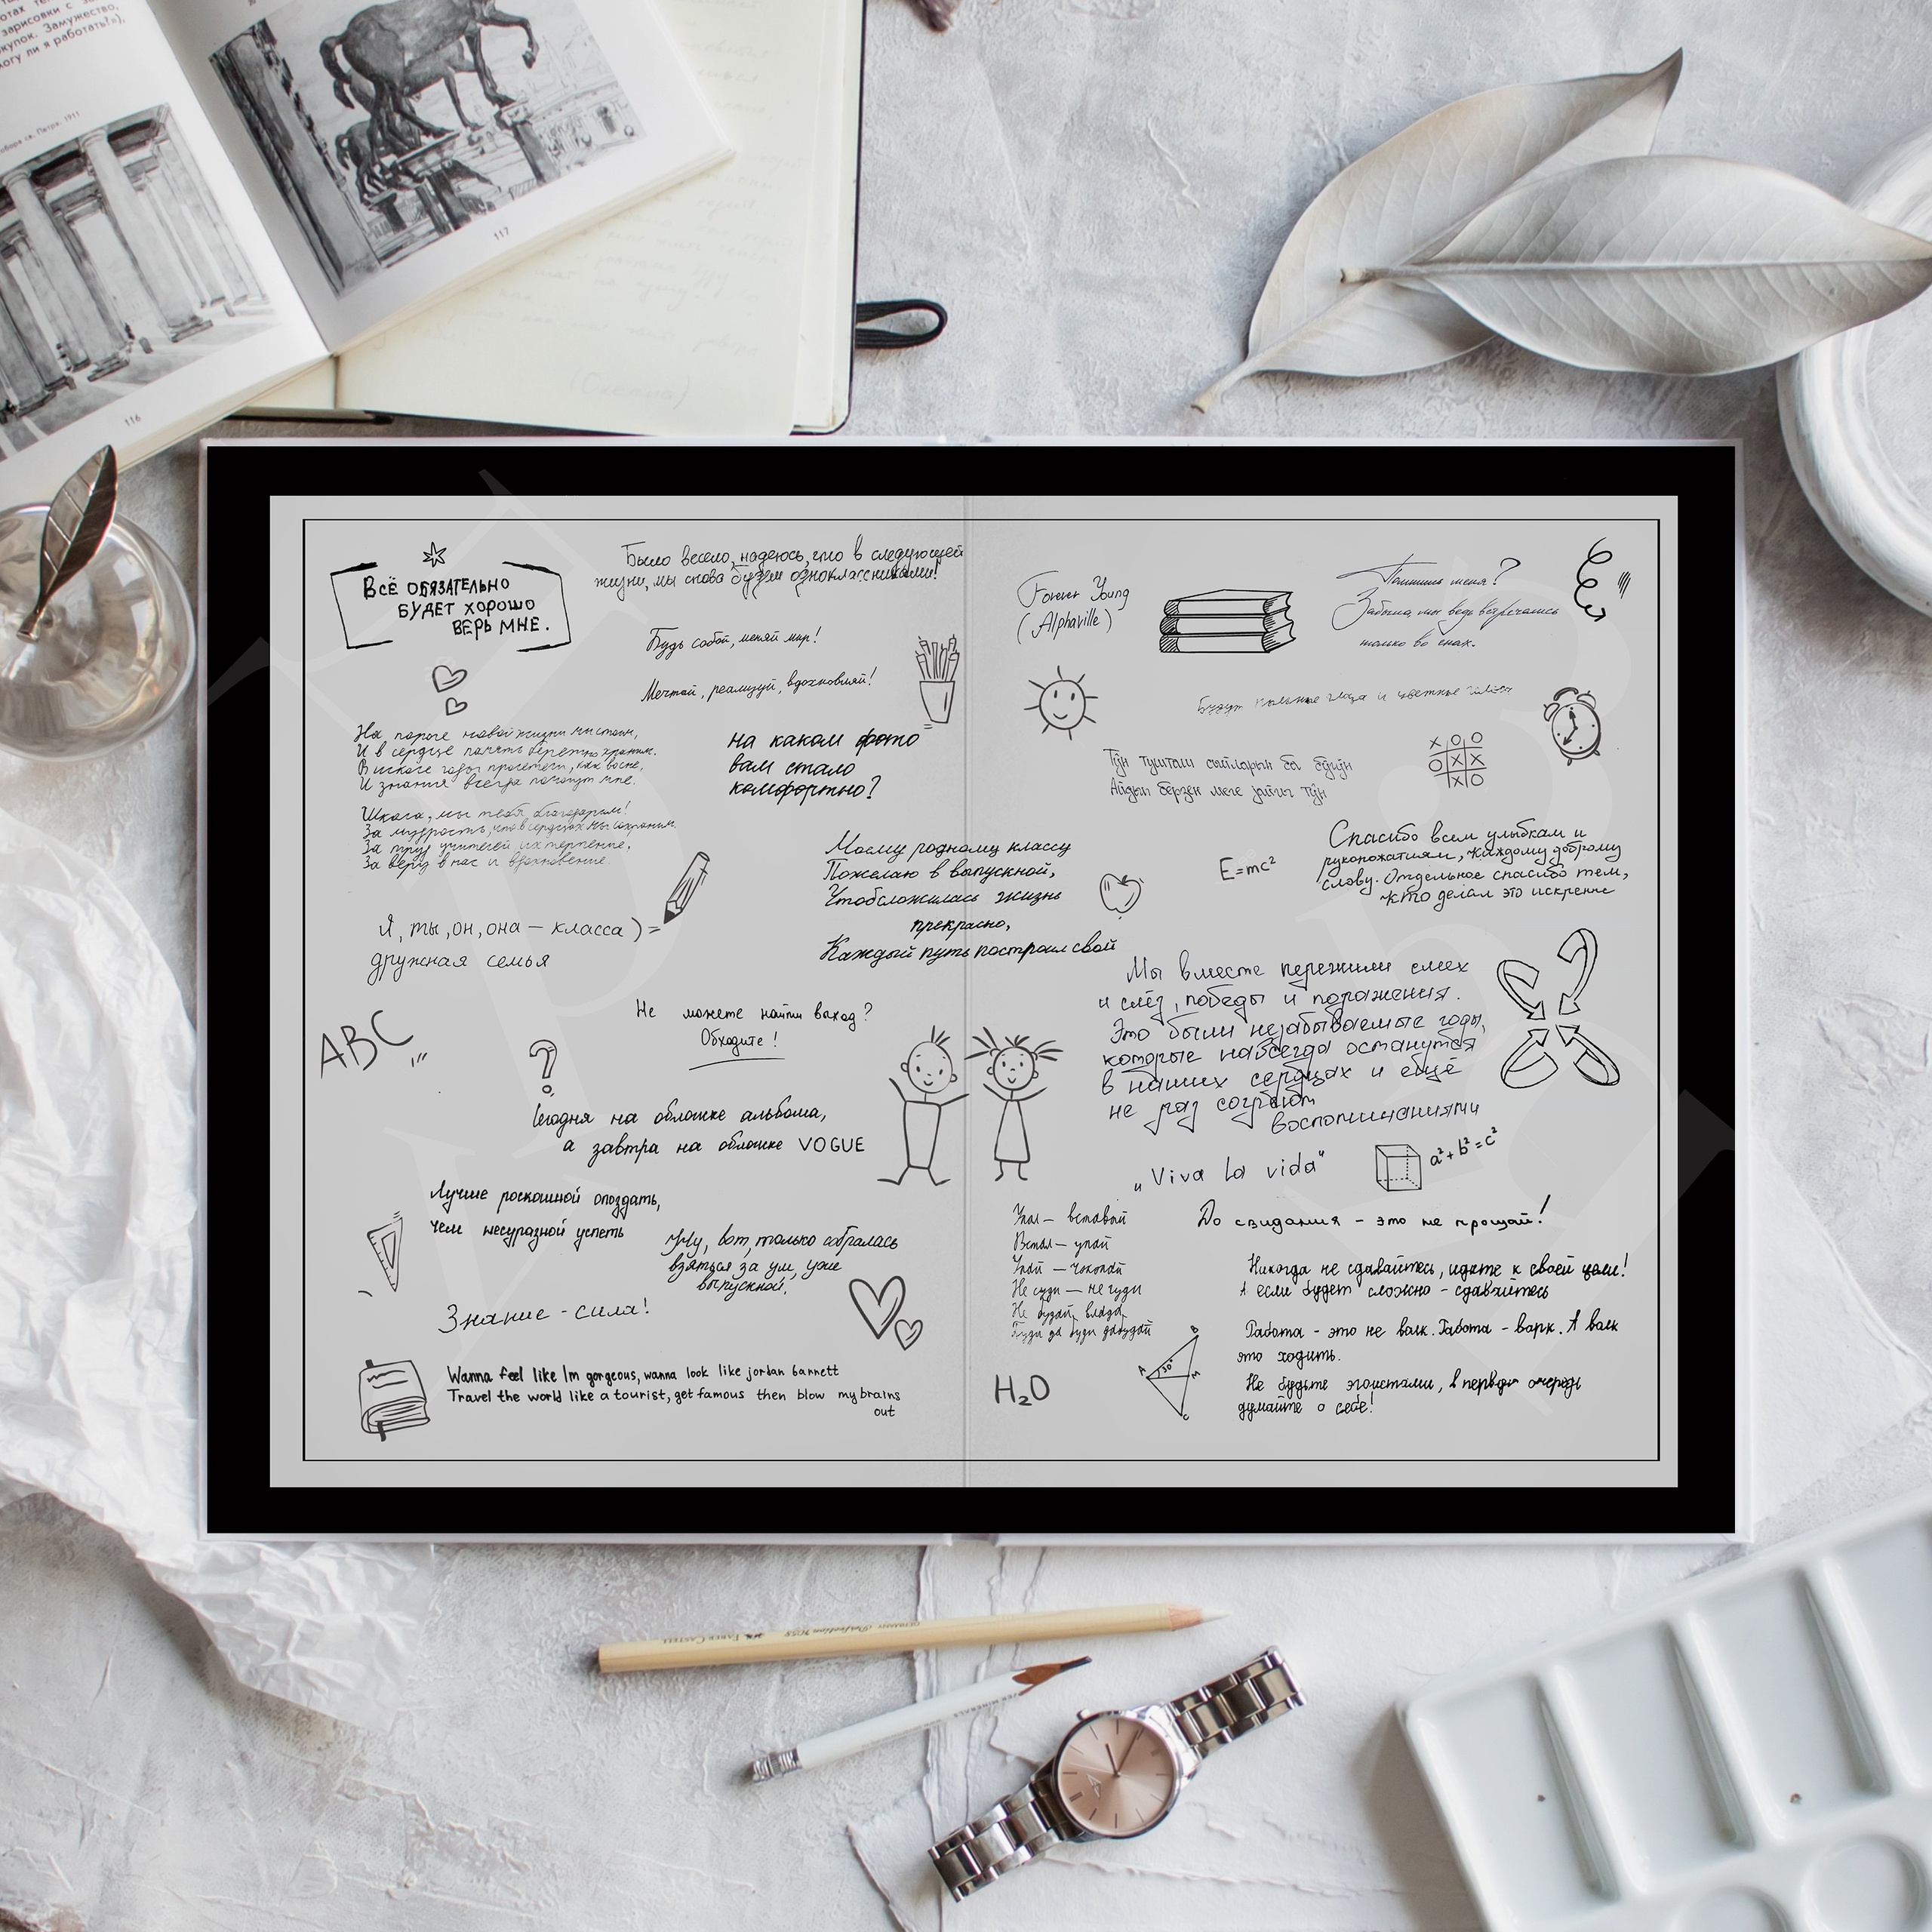 зарисовки с
купок. Замужество,
могу ли я работать?»),
собора св. Петра. 1911
116
117
ВСЁ ОБЯЗАТЕЛЬНО
БУДЕТ ХОРОШО
ВЕРЬ МНЕ.
Было весело, надеюсь, что в следующей
жизни, мы снова будем одноклассниками!
Будь собой, меняй мир!
Мечтай, реализуй, вдохновляй!
На пороге новой жизни мы стоим,
И в сердце память бережно храним.
В школе годы пролетели, как во сне,
И знания всегда помогут мне.
Школа, мы тебя благодарим!
За мудрость, что в сердцах мы сохраним.
За труд учителей их терпение,
За веру в нас и вдохновение.
на каком фото
вам стало
комфортно?
Моему родному классу
Пожелаю в выпускной,
Чтоб сложилась жизнь
прекрасно,
Каждый путь построил свой
Я, ты, он, она – класса )=
дружная семья
ABC
Не можете найти выход?
Обходите!
Сегодня на обложке альбома,
а завтра на обложке VOGUE
Лучше роскошной опоздать,
чем несуразной успеть
Ну, вот, только собралась
взяться за ум, уже
выпускной.
Знание - сила!
Wanna feel like Im gorgeous, wanna look like jordan barrett
Travel the world like a tourist, get famous then blow my brains
out
Forever Young
(Alphaville)
Помнишь меня?
Забыла, мы ведь встречались
только во снах.
Будут глаза и цветные
X O O
O X X
X O
Түн
Айдың берген меге түн
E=mc²
Спасибо всем улыбкам и
рукопожатиям, каждому доброму
слову. Отдельное спасибо тем,
кто делал это искренне
Мы вместе пережили смех
и слёз, победы и поражения.
Это были незабываемые годы,
которые навсегда останутся
в наших сердцах и ещё
не раз согреют
воспоминаниями
„Viva la vida"
a²+b²=c²
До свидания - это не прощай!
Упал — вставай
Встал — упай
Упай —
Не суди — не чуди
Не
Никогда не сдавайтесь, идите к своей цели!
А если будет сложно - сдавайтесь
Работа - это не волк. Работа - ворк. А волк
это ходить.
Не будьте эгоистами, в первую очередь
думайте о себе!
H₂O
A
B
30°
M
C
FABER-CASTELL Perfection 7058 GERMANY